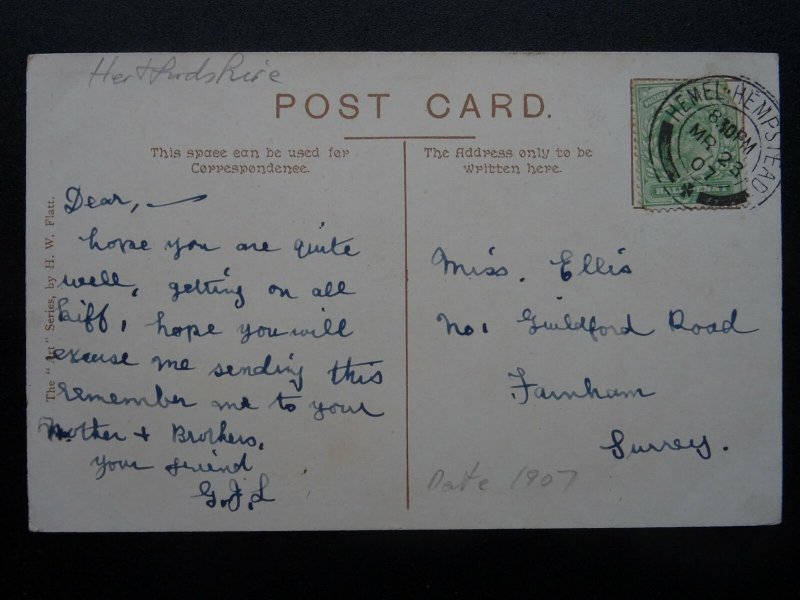 Hertfordshire
POST CARD.
This space can be used for
Correspondence.
The Address only to be
written here.
HEMEL-HEMPSTEAD
MR 23
07
The "Art" Series, by H. W. Flatt.
Dear,
hope you are quite
well, getting on all
kiff, hope you will
excuse me sending this
remember me to your
Mother + Brothers,
your friend
G.J.L
Miss. Ellis
No1 Guildford Road
Farnham
Surrey.
Date 1907